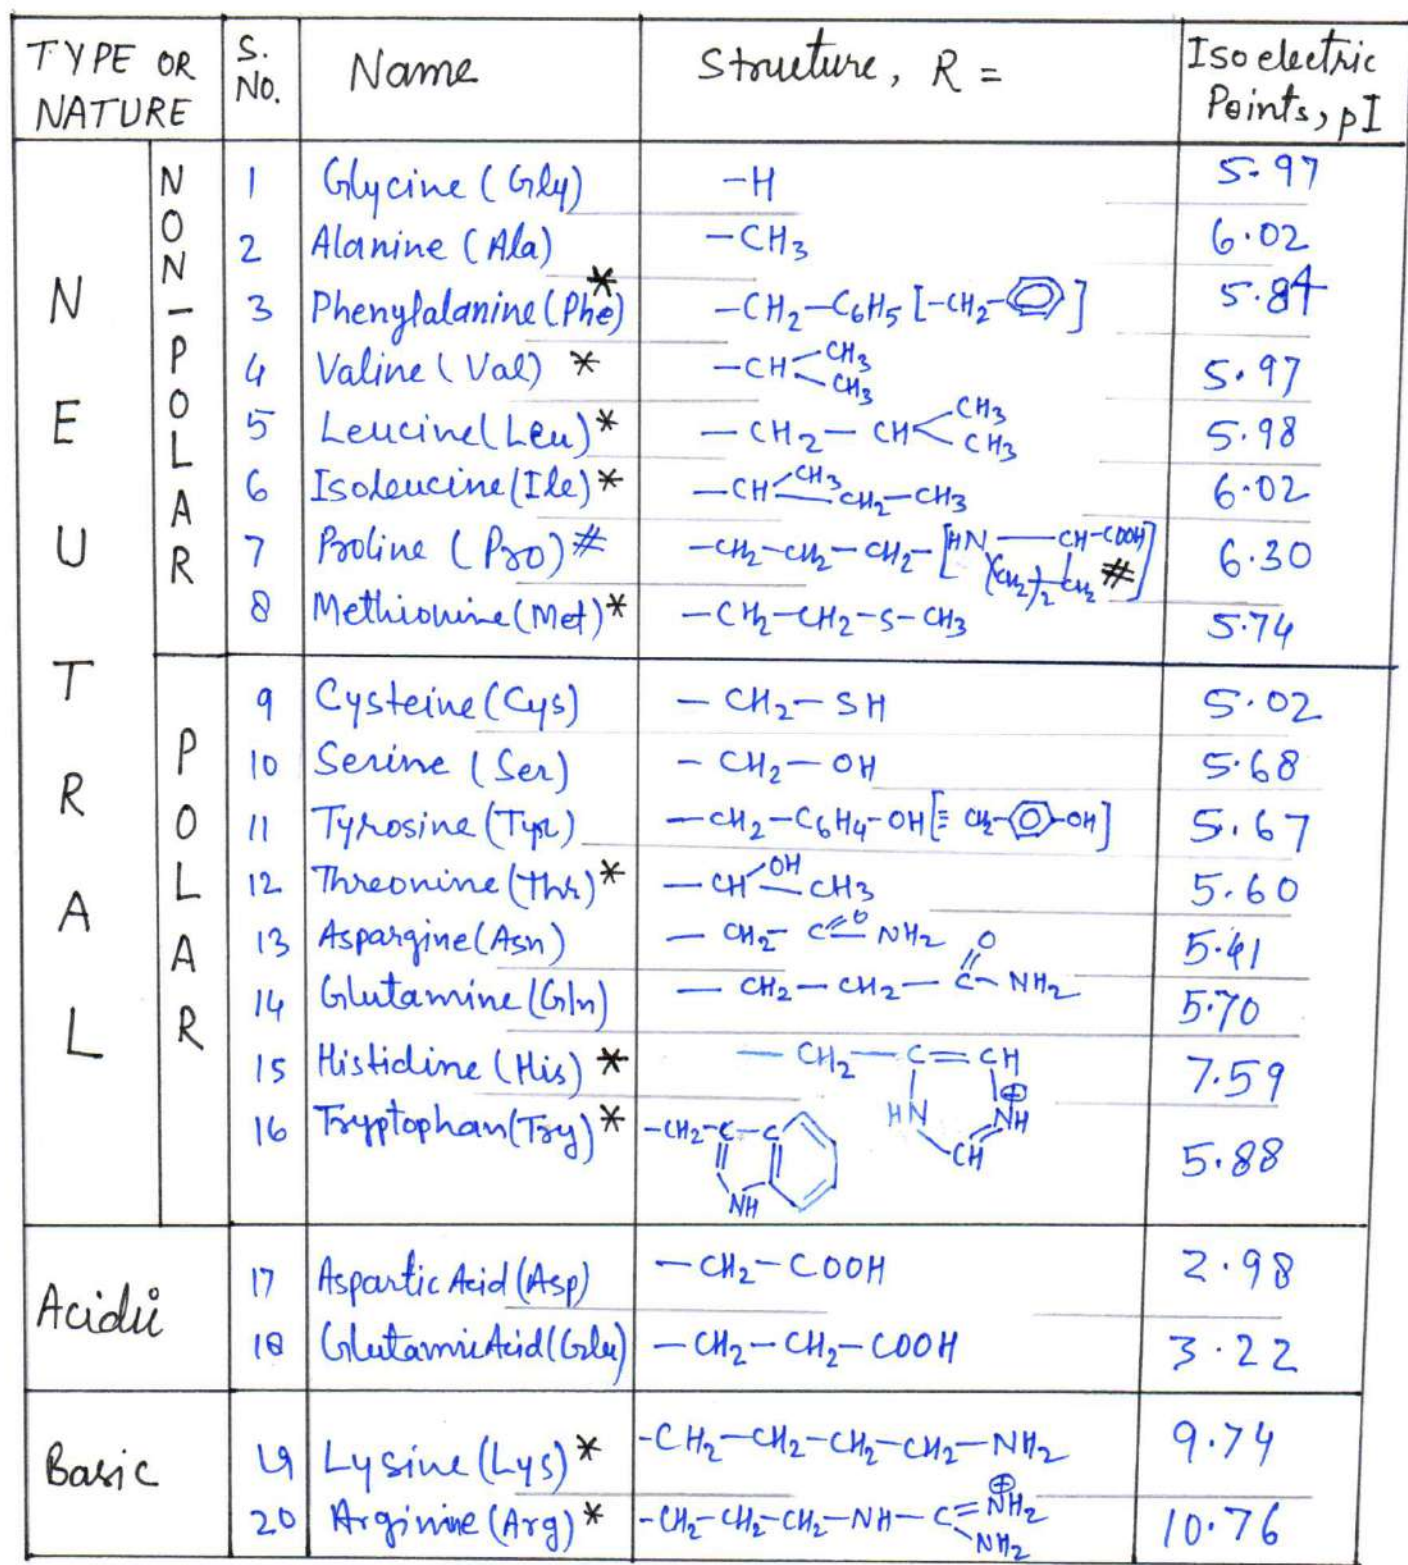 TYPE OR NATURE | S. No. | Name | Structure, R = | Isoelectric Points, pI
NEUTRAL
NON-POLAR
1 Glycine (Gly) -H 5.97
2 Alanine (Ala) -CH3 6.02
3 Phenylalanine (Phe)* -CH2-C6H5 [-CH2-] 5.84
4 Valine (Val) * -CH CH3 CH3 5.97
5 Leucine (Leu)* -CH2-CH CH3 CH3 5.98
6 Isoleucine (Ile)* -CH CH3 CH2-CH3 6.02
7 Proline (Pro)# -CH2-CH2-CH2- [HN-CH-COOH (CH2)2 CH2 #] 6.30
8 Methionine (Met)* -CH2-CH2-S-CH3 5.74
POLAR
9 Cysteine (Cys) -CH2-SH 5.02
10 Serine (Ser) -CH2-OH 5.68
11 Tyrosine (Tyr) -CH2-C6H4-OH [≡ CH2-OH] 5.67
12 Threonine (Thr)* -CH OH CH3 5.60
13 Aspargine (Asn) -CH2-C=O NH2 5.41
14 Glutamine (Gln) -CH2-CH2-C=O-NH2 5.70
15 Histidine (His) * -CH2-C=CH HN CH ⊕NH 7.59
16 Tryptophan (Try)* -CH2-C-C NH 5.88
Acidic
17 Aspartic Acid (Asp) -CH2-COOH 2.98
18 Glutamic Acid (Glu) -CH2-CH2-COOH 3.22
Basic
19 Lysine (Lys)* -CH2-CH2-CH2-CH2-NH2 9.74
20 Arginine (Arg)* -CH2-CH2-CH2-NH-C=⊕NH2 NH2 10.76